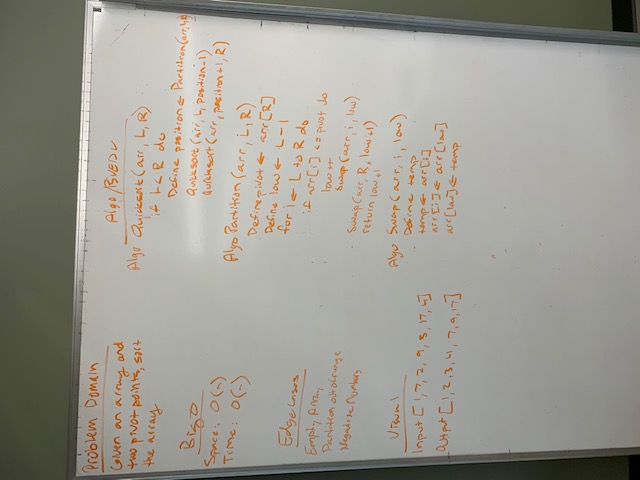 Problem Domain
Given an array and
two pivot points, sort
the array
Big O
Space: O(n)
Time: O(n)
Edge Cases
Empty Array
Partition out of range
Negative Numbers
Visual
Input [1, 7, 2, 9, 3, 17, 4]
Output [1, 2, 3, 4, 7, 9, 17]
Algo/
Algo Quicksort (arr, L, R)
if L < R do
Define position ← Partition(arr, L, R)
Quicksort (arr, L, position-1)
Quicksort (arr, position+1, R)
Algo Partition (arr, L, R)
Define pivot ← arr[R]
Define low ← L - 1
for i ← L to R do
if arr[i] <= pivot do
low++
Swap(arr, i, low)
Swap(arr, R, low+1)
return low+1
Algo Swap (arr, i, low)
Define temp
temp ← arr[i]
arr[i] ← arr[low]
arr[low] ← temp